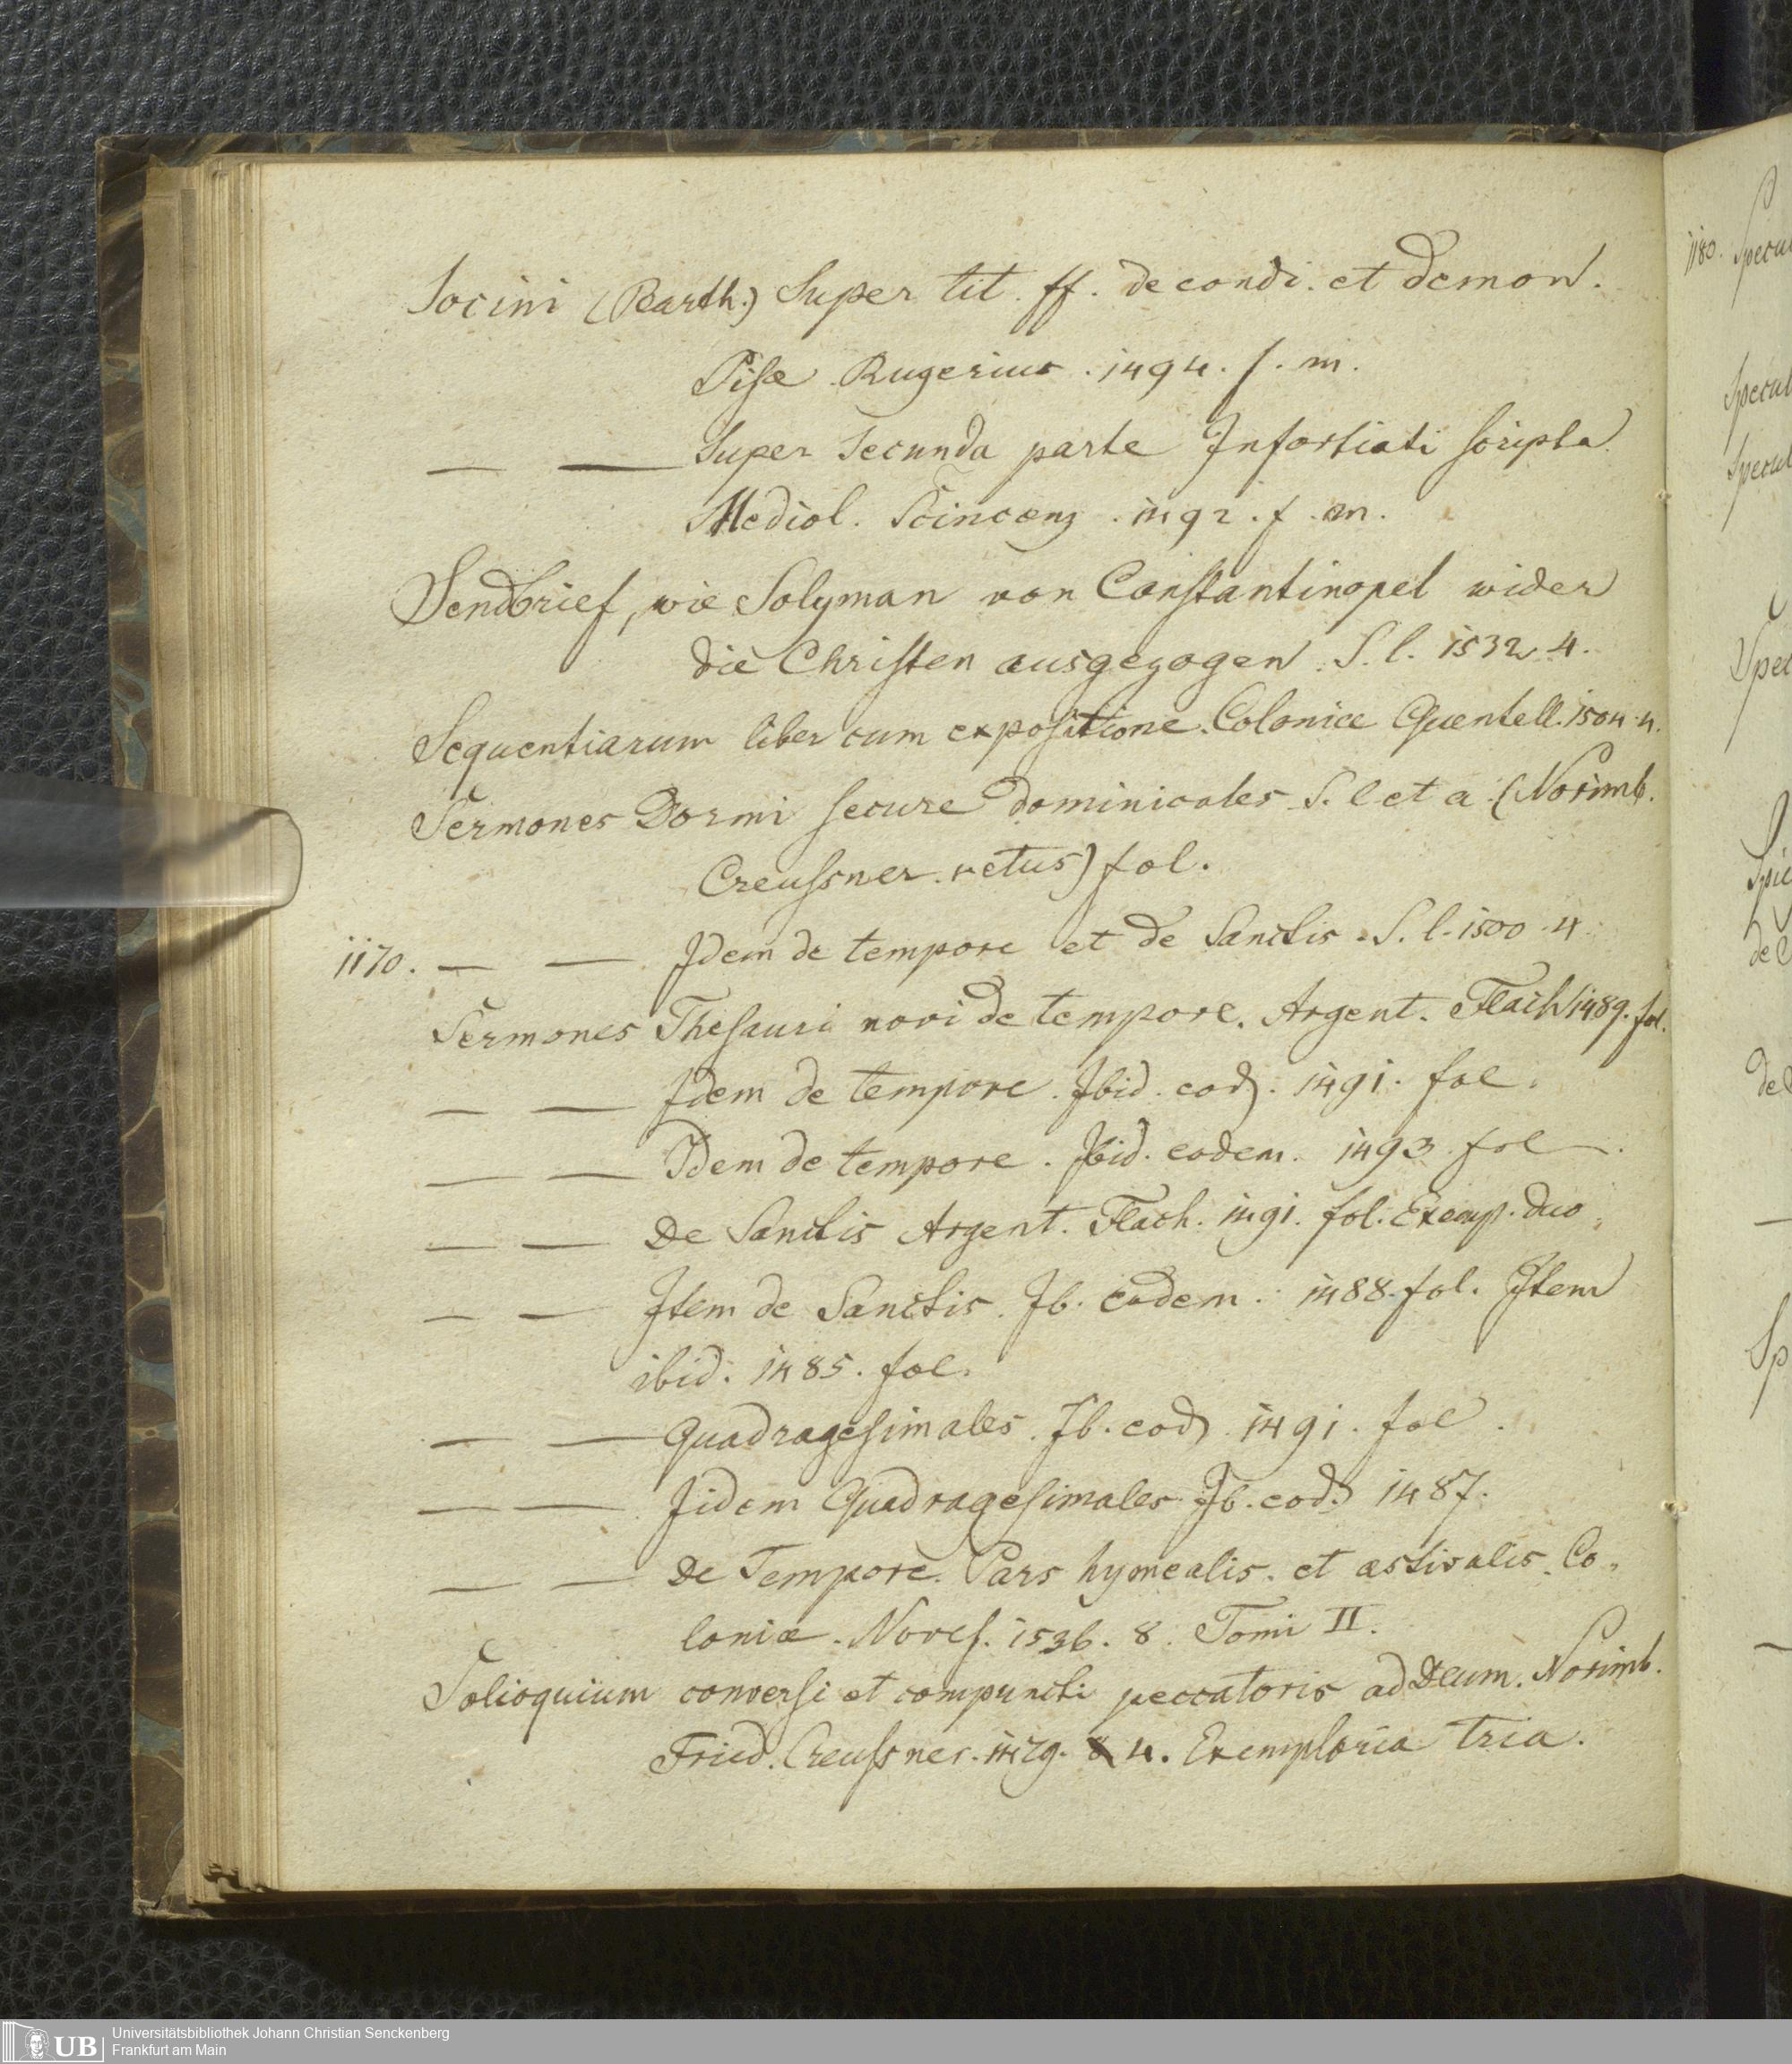 Socini (Barth.) Super tit. ff. de condi. et demon.
Pisæ Rugerius. 1494. f. m.
— — Super Secunda parte Infortiati scripta
Mediol. Scincenz. 1492. f. m.
Sendbrief, wie Solyman von Constantinopel wider
die Christen ausgezogen. S. l. 1532. 4.
Sequentiarum liber cum expositione. Coloniæ Quentell. 1504. 4.
Sermones Dormi secure dominicales S. l et a. (Norimb.
Creussner. vetus) fol.
1170. — — Idem de tempore et de Sanctis. S. l. 1500. 4.
Sermones Thesauri novi de tempore. Argent. Flach 1489. fol.
— — Idem de tempore. Ibid. eod. 1491. fol.
— — Idem de tempore. Ibid. eodem. 1493. fol.
— — De Sanctis Argent. Flach. 1491. fol. Exemp. duo.
— — Item de Sanctis. Ib. eodem. 1488. fol. Item
ibid. 1485. fol.
— — Quadragesimales. Ib. eod. 1491. fol.
— — Iidem Quadragesimales. Ib. eod. 1487.
— — De Tempore. Pars hymealis. et æstivalis. Co-
loniæ. Noves. 1536. 8. Tomi II.
Solioquium conversi et compuncti peccatoris ad Deum. Norimb.
Fried. Creussner. 1479. 4. Exemplaria tria.
1180. Specu
Specul
Specul
Spec
Spic
de
de
Sp
UB Universitätsbibliothek Johann Christian Senckenberg
Frankfurt am Main